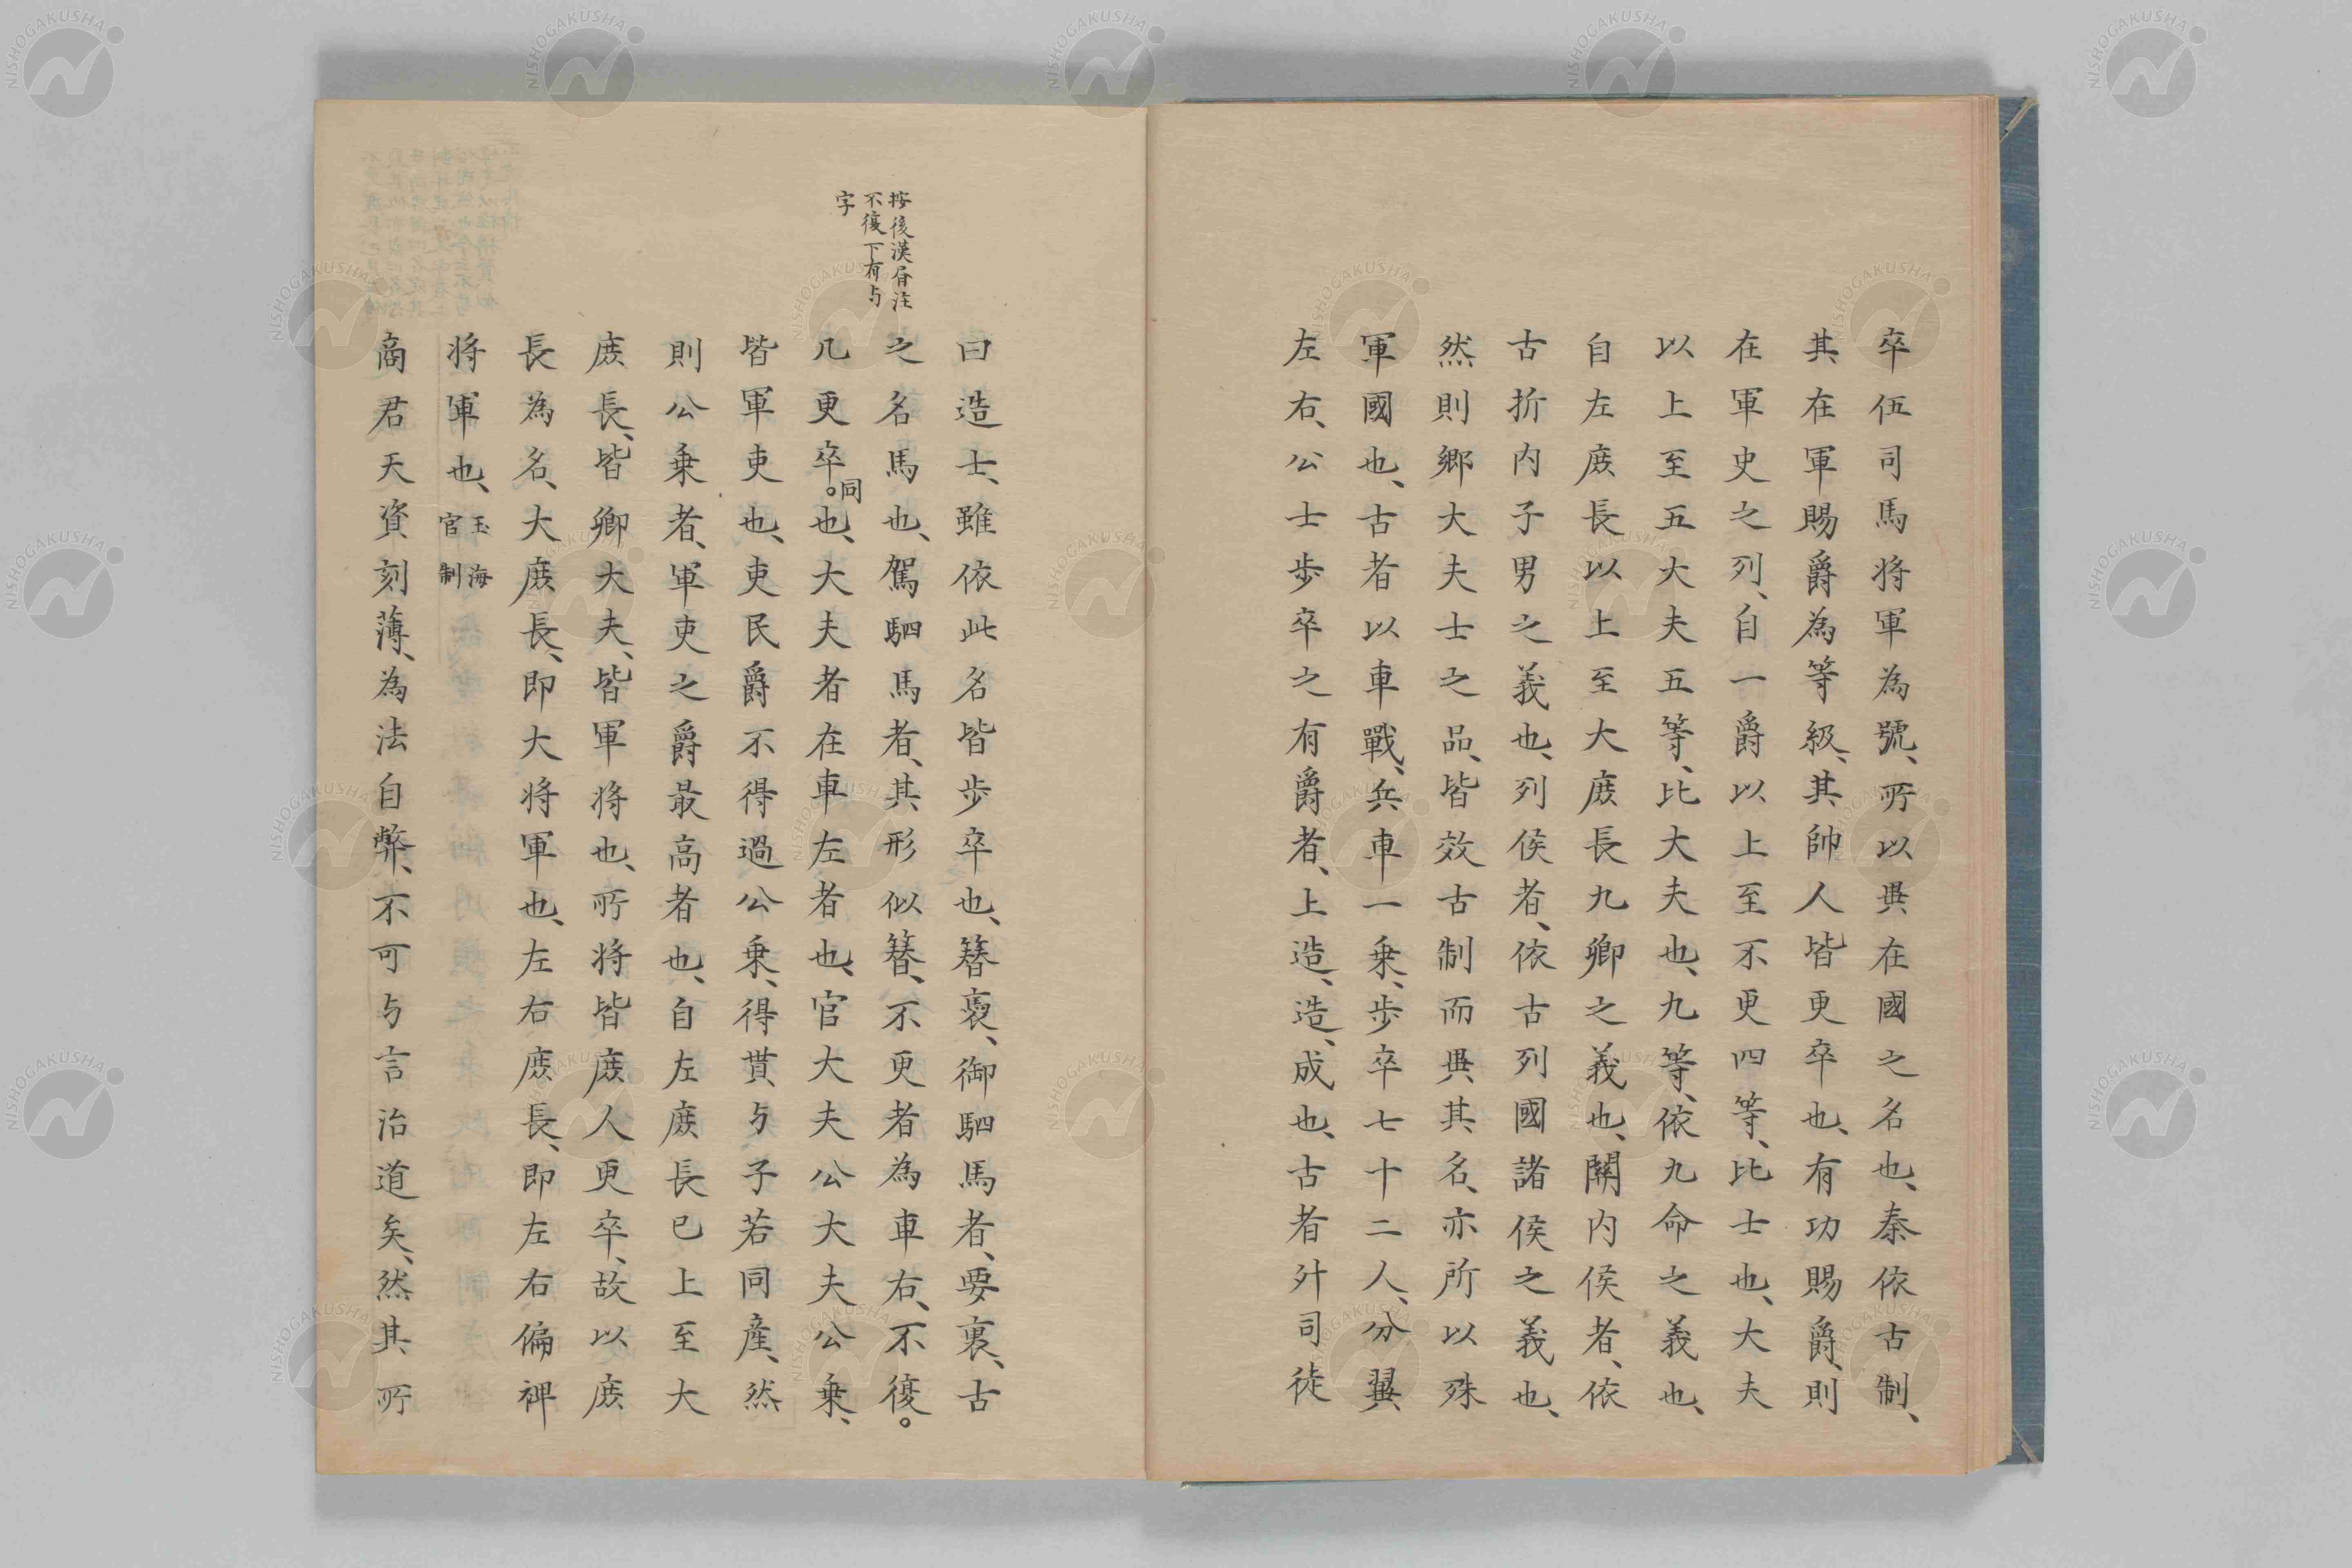 卒伍司馬将軍為號、所以異在國之名也、秦依古制、
其在軍賜爵為等級、其帥人皆更卒也、有功賜爵、則
在軍史之列、自一爵以上至不更四等、比士也、大夫
以上至五大夫五等、比大夫也、九等、依九命之義也、
自左庶長以上至大庶長九卿之義也、關内侯者、依
古折内子男之義也、列侯者、依古列國諸侯之義也、
然則郷大夫士之品、皆效古制而異其名、亦所以殊
軍國也、古者以車戰、兵車一乗、歩卒七十二人、分翼
左右、公士歩卒之有爵者、上造、造、成也、古者升司徒
按後漢書注
不復下有与
字
曰造士、雖依此名皆歩卒也、簪褭、御駟馬者、要裏、古
之名馬也、駕駟馬者、其形似簪、不更者為車右、不復。
凡更卒。同也、大夫者在車左者也、官大夫公大夫公乗、
皆軍吏也、吏民爵不得過公乗、得貰与子若同産、然
則公乗者、軍吏之爵最高者也、自左庶長已上至大
庶長、皆卿大夫、皆軍将也、所将皆庶人更卒、故以庶
長為名、大庶長、即大将軍也、左右庶長、即左右偏裨
将軍也、玉海官制
商君天資刻薄、為法自弊、不可与言治道矣、然其所
NISHOGAKUSHA